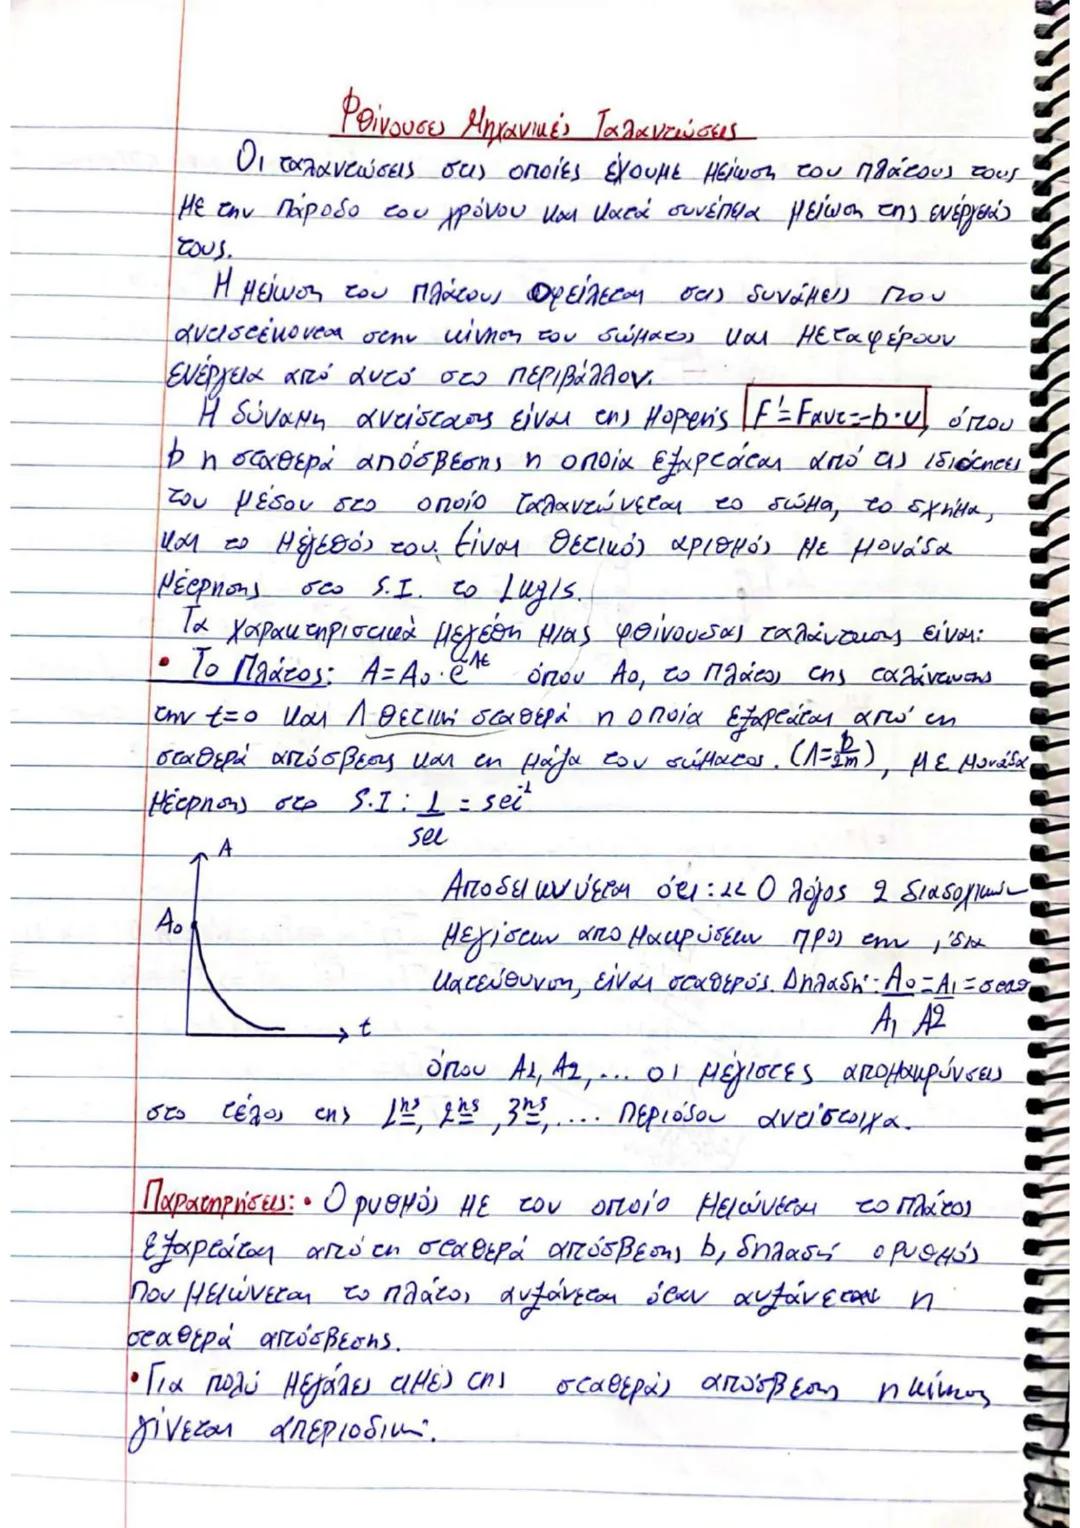 Φθίνουσες Μηχανικές Ταλαντώσεις
Οι ταλαντώσεις στις οποίες έχουμε μείωση του πλάτους τους
με την πάροδο του χρόνου και κατά συνέπεια μείωση της ενέργειάς
τους.
Η μείωση του πλάτους οφείλεται στις δυνάμεις που
αντιστέκονται στην κίνηση του σώματος και μεταφέρουν
ενέργεια από αυτό στο περιβάλλον.
Η δύναμη αντίστασης είναι της μορφής F'=Fαντ=-b·υ, όπου
b η σταθερά απόσβεσης η οποία εξαρτάται από τις ιδιότητες
του μέσου στο οποίο ταλαντώνεται το σώμα, το σχήμα,
και το μέγεθός του. Είναι θετικός αριθμός με μονάδα
μέτρησης στο S.I. το 1kg/s.
Τα χαρακτηριστικά μεγέθη μιας φθίνουσας ταλάντωσης είναι:
• Το Πλάτος: A=A₀·e^-Λt όπου A₀, το πλάτος της ταλάντωσης
την t=0 και Λ θετική σταθερά η οποία εξαρτάται από τη
σταθερά απόσβεσης και τη μάζα του σώματος. (Λ=b/2m), με μονάδα
μέτρησης στο S.I: 1/sec = sec⁻¹
A
Αποδεικνύεται ότι: << Ο λόγος 2 διαδοχικών
A₀
μεγίστων απομακρύσεων προς την ίδια
κατεύθυνση, είναι σταθερός. Δηλαδή: A₀/A₁=A₁/A2=σταθ
t
όπου A1, A2, ... οι μέγιστες απομακρύνσεις
στο τέλος της 1ης, 2ης, 3ης, ... περιόδου αντίστοιχα.
Παρατηρήσεις: • Ο ρυθμός με τον οποίο μειώνεται το πλάτος
εξαρτάται από τη σταθερά απόσβεσης b, δηλαδή ο ρυθμός
που μειώνεται το πλάτος αυξάνεται όταν αυξάνεται η
σταθερά απόσβεσης.
• Για πολύ μεγάλες τιμές της σταθεράς απόσβεσης η κίνηση
γίνεται απεριοδική.